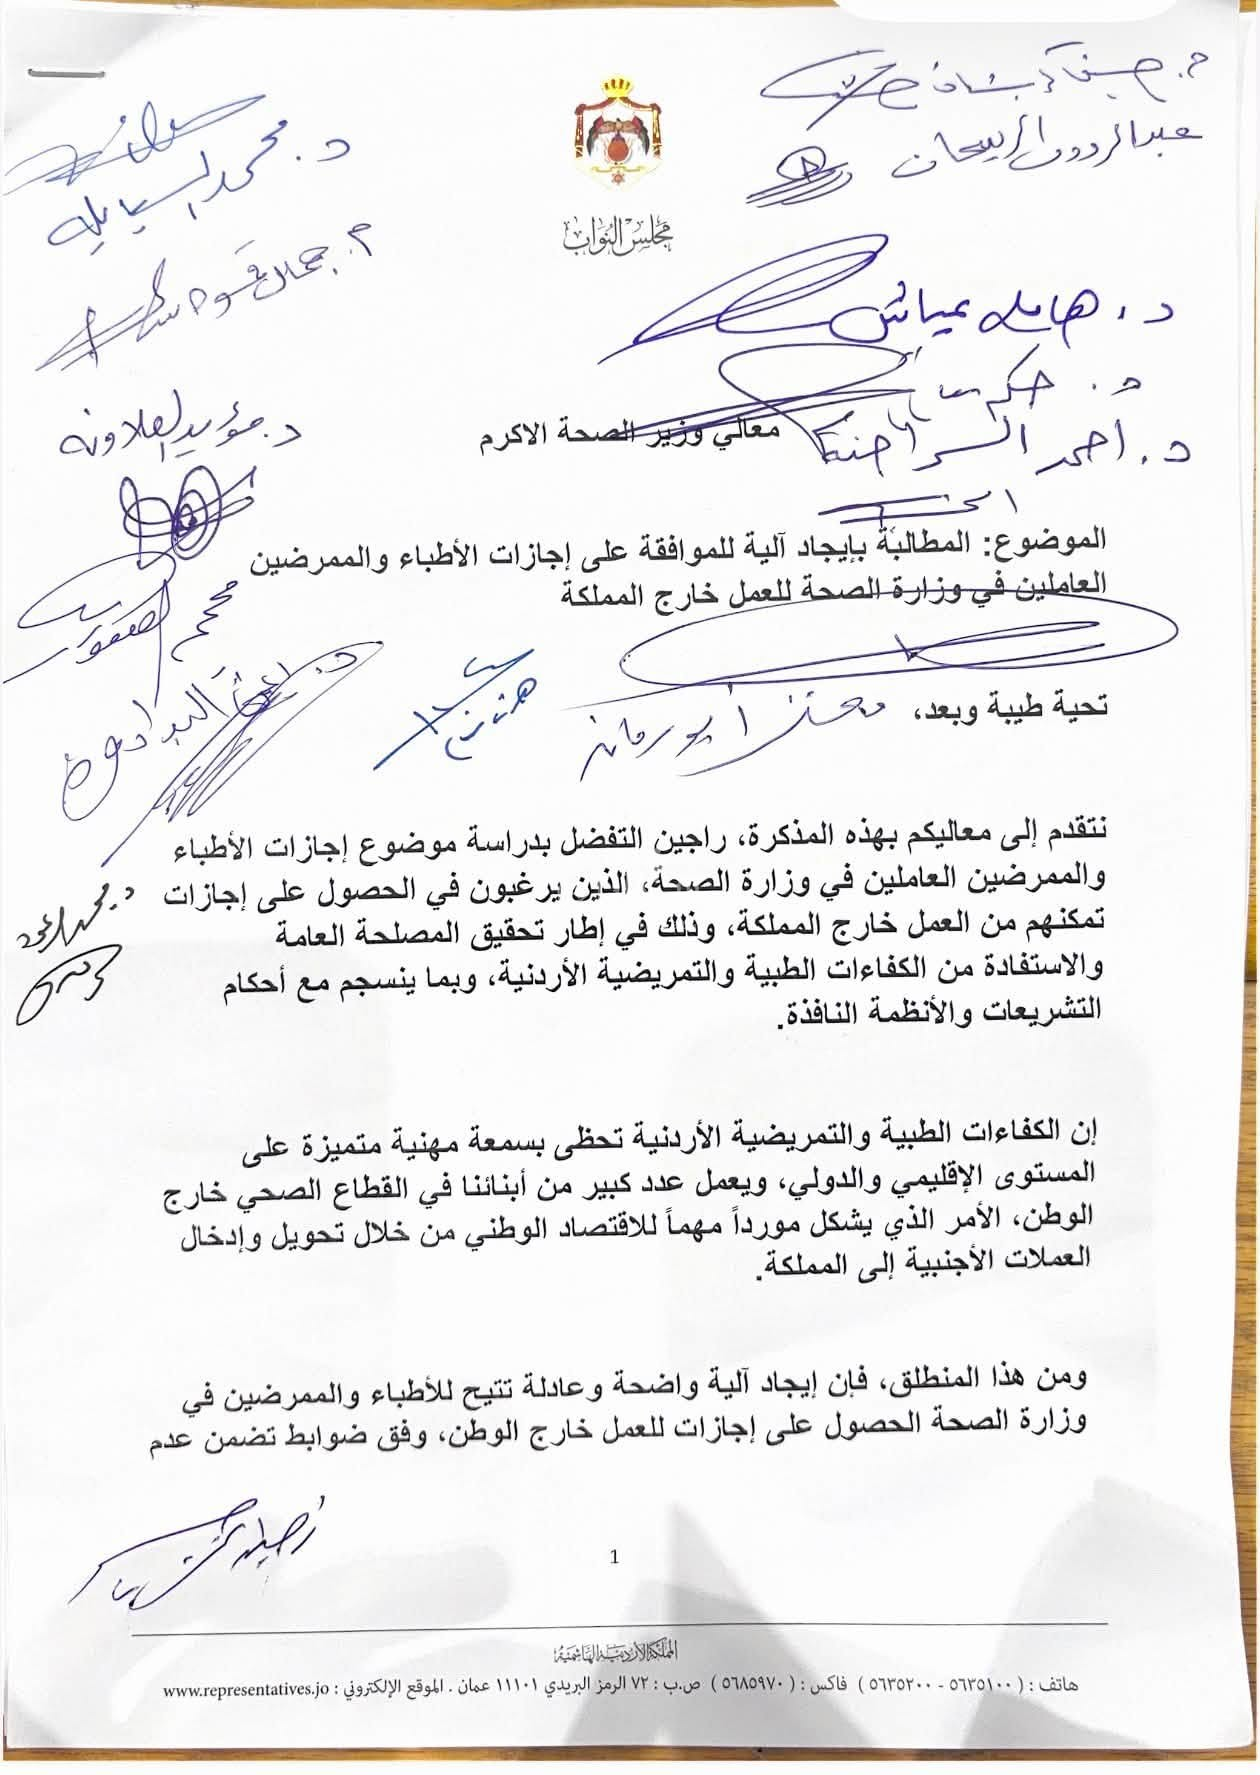 مجلس النواب
عبدالرؤوف الربيحات
د. محمد السبايلة
م. جمال قموه
د. مؤيد العلاونه
د. احمد السراحنة
معالي وزير الصحة الاكرم
الموضوع: المطالبة بإيجاد آلية للموافقة على إجازات الأطباء والممرضين
العاملين في وزارة الصحة للعمل خارج المملكة
تحية طيبة وبعد،
معتز أبو رمان
نتقدم إلى معاليكم بهذه المذكرة، راجين التفضل بدراسة موضوع إجازات الأطباء
والممرضين العاملين في وزارة الصحة، الذين يرغبون في الحصول على إجازات
تمكنهم من العمل خارج المملكة، وذلك في إطار تحقيق المصلحة العامة
والاستفادة من الكفاءات الطبية والتمريضية الأردنية، وبما ينسجم مع أحكام
التشريعات والأنظمة النافذة.
إن الكفاءات الطبية والتمريضية الأردنية تحظى بسمعة مهنية متميزة على
المستوى الإقليمي والدولي، ويعمل عدد كبير من أبنائنا في القطاع الصحي خارج
الوطن، الأمر الذي يشكل مورداً مهماً للاقتصاد الوطني من خلال تحويل وإدخال
العملات الأجنبية إلى المملكة.
ومن هذا المنطلق، فإن إيجاد آلية واضحة وعادلة تتيح للأطباء والممرضين في
وزارة الصحة الحصول على إجازات للعمل خارج الوطن، وفق ضوابط تضمن عدم
1
المملكة الأردنية الهاشمية
هاتف : ( ٥٦٣٥١٠٠ - ٥٦٣٥٢٠٠ ) فاكس : ( ٥٦٨٥٩٧٠ ) ص.ب : ٧٢ الرمز البريدي ١١١٠١ عمان . الموقع الإلكتروني : www.representatives.jo